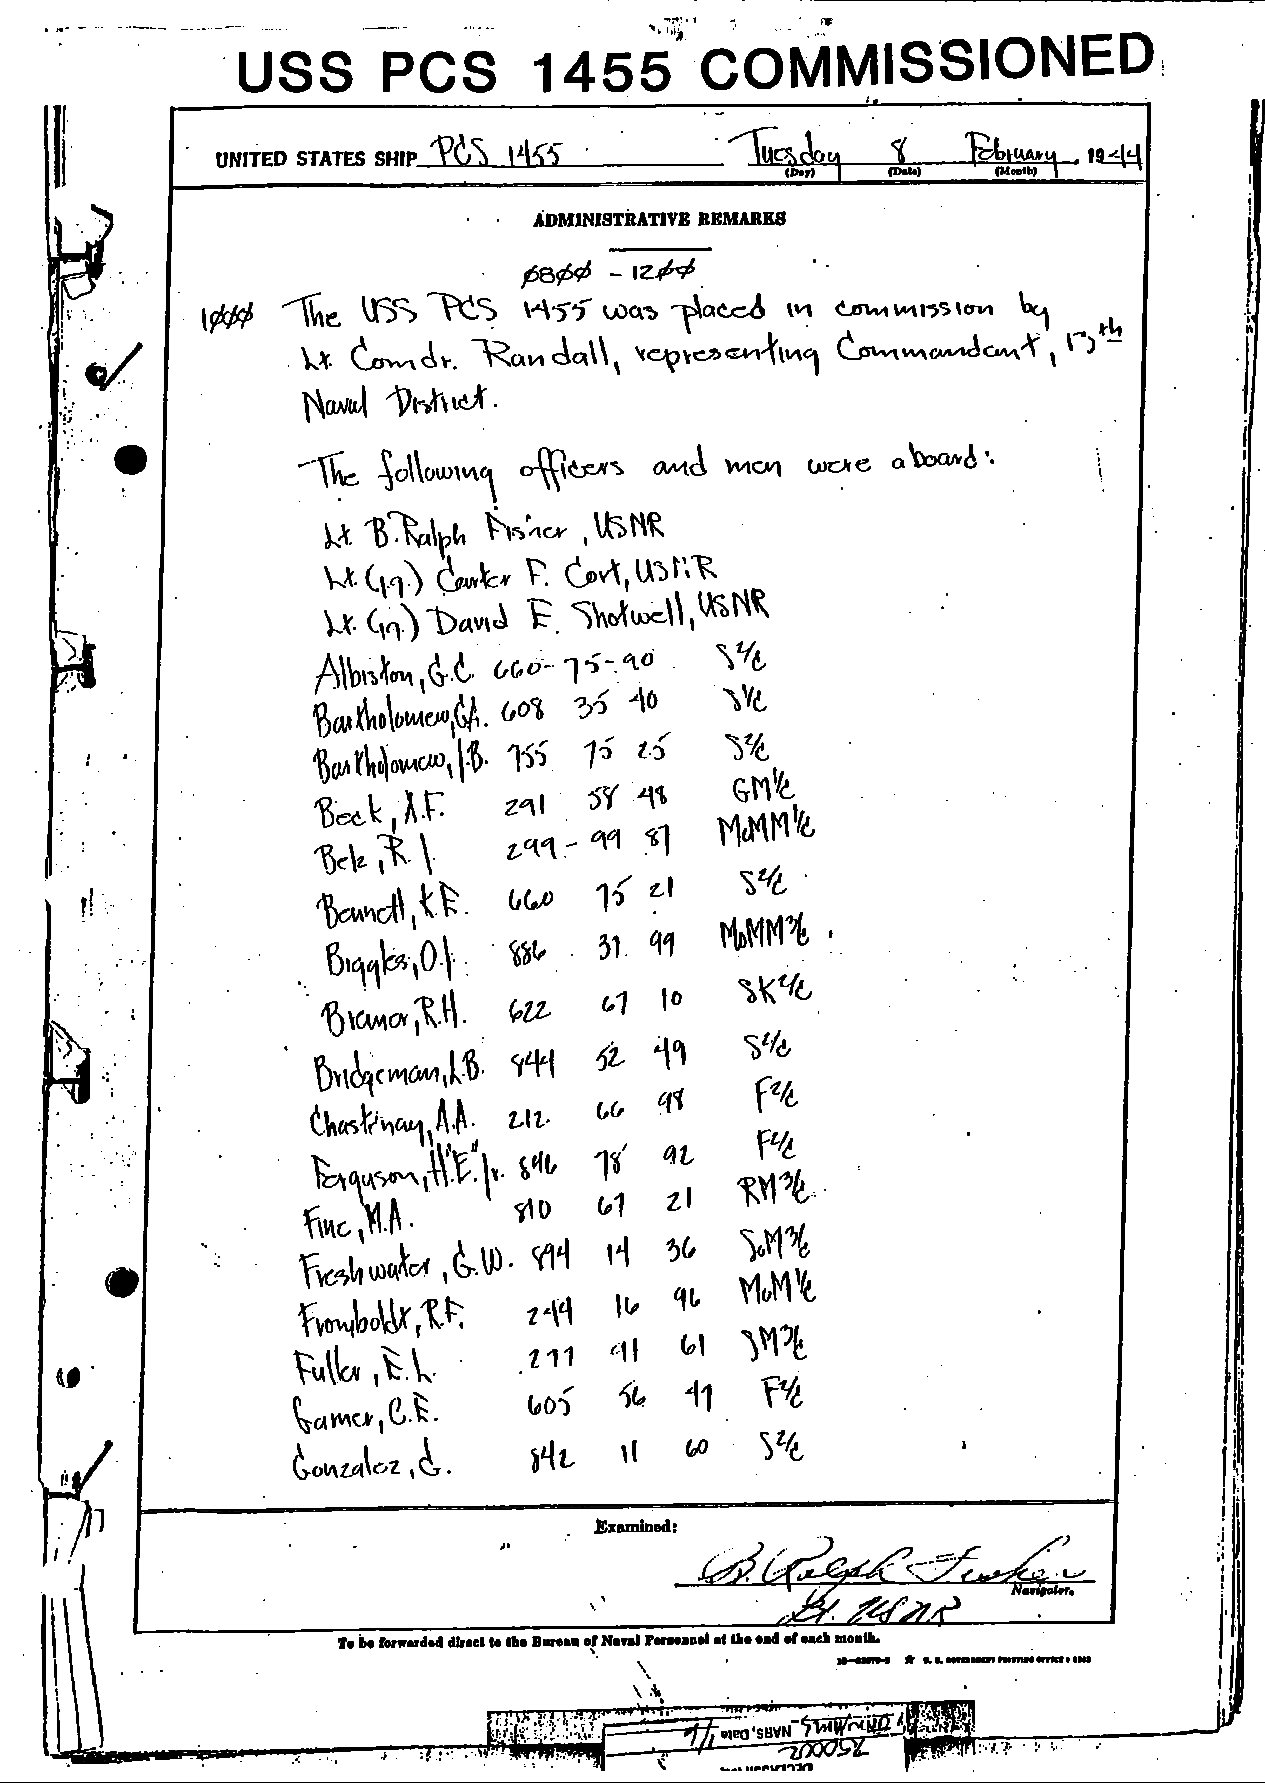 USS PCS 1455 COMMISSIONED
UNITED STATES SHIP PCS 1455 Tuesday 8 February, 1944
(Day) (Date) (Month)
ADMINISTRATIVE REMARKS
0800 - 1200
1000 The USS PCS 1455 was placed in commission by
Lt. Comdr. Randall, representing Commandant, 13th
Naval District.
The following officers and men were aboard:
Lt. B. Ralph Fisher, USNR
Lt. (jg.) Carter F. Cort, USNR
Lt. (jg.) David E. Shotwell, USNR
Albiston, G.C. 660-75-90 S2/c
Bartholomew, G.A. 608 35 40 S1/c
Bartholomew, J.B. 755 75 25 S2/c
Beck, A.F. 291 58 48 GM1/c
Belz, R.J. 299-99 87 MoMM1/c
Bennett, K.E. 660 75 21 S2/c
Biggles, O.J. 886 37 99 MoMM3/c
Bramer, R.H. 622 67 10 SK2/c
Bridgeman, L.B. 844 52 49 S2/c
Chastinay, A.A. 212 66 98 F2/c
Ferguson, "H" "E" Jr. 846 78 92 F2/c
Finc, M.A. 810 67 21 RM3/c
Freshwater, G.W. 894 14 36 SoM3/c
Fromboldt, R.F. 244 16 96 MoM1/c
Fuller, E.L. 277 91 61 SM3/c
Garner, C.E. 605 56 47 F2/c
Gonzalez, G. 842 11 60 S2/c
Examined:
B. Ralph Fisher
Navigator.
Lt. USNR
To be forwarded direct to the Bureau of Naval Personnel at the end of each month.
U. S. GOVERNMENT PRINTING OFFICE
NARS, Date